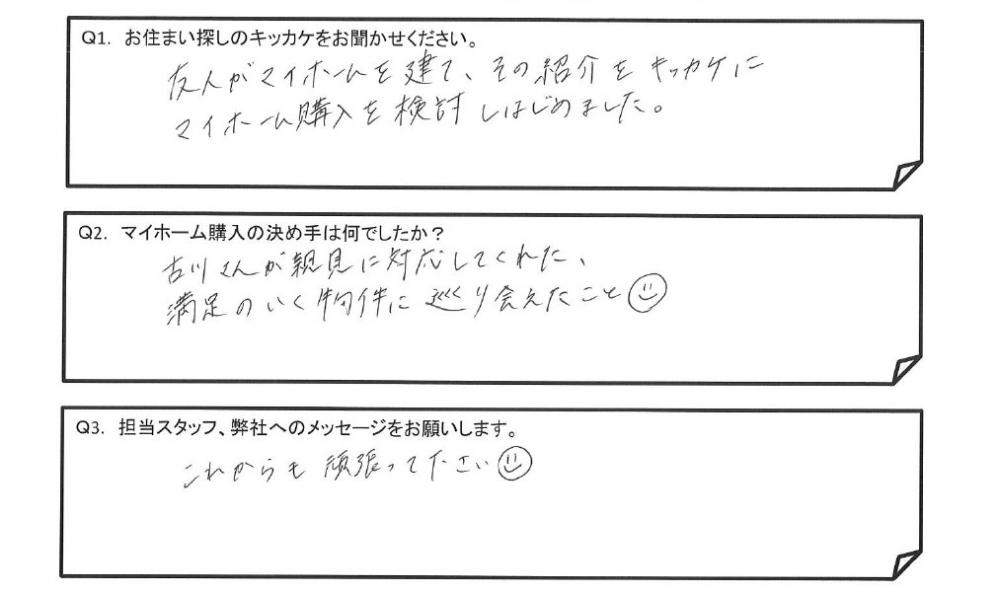 Q1. お住まい探しのキッカケをお聞かせください。
友人がマイホームを建て、その紹介をキッカケに
マイホーム購入を検討しはじめました。
Q2. マイホーム購入の決め手は何でしたか？
古川さんが親見に対応してくれた、
満足のいく物件に巡り会えたこと☺
Q3. 担当スタッフ、弊社へのメッセージをお願いします。
これからも頑張って下さい☺